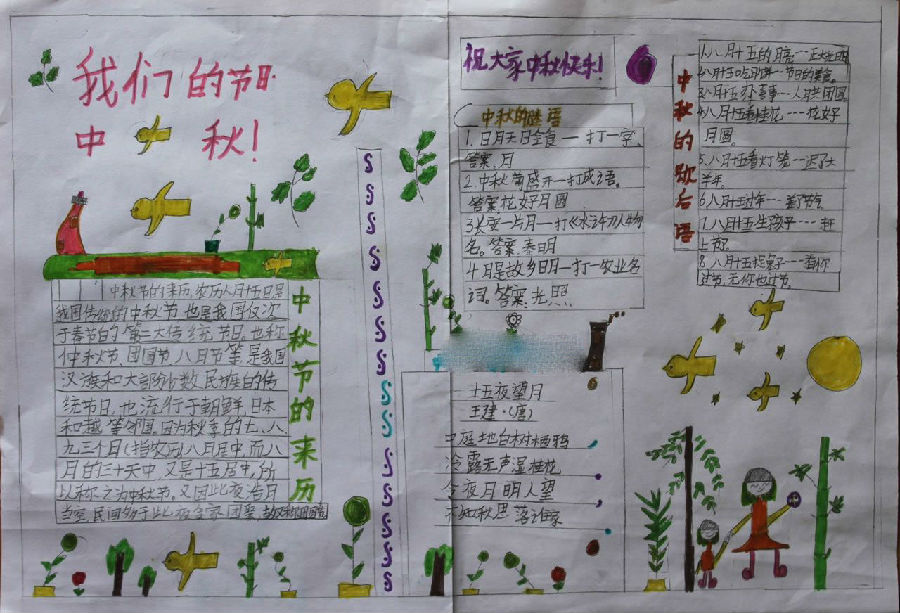 我们的节日
中秋!
祝大家中秋快乐!
中秋的谜语
1.日月天日全食一打一字。
答案.月
2.中秋菊盛开一打成语。
答案花好月圆
3.长安一片月一打《水浒》人物
名。答案.秦明
4月是故乡明一打一农业名
词。答案.光照
中秋的歇后语
1.八月十五的月亮---正大光明
2.八月十五吃月饼---节日的美食
3.八月十五办喜事---人月共团圆
4.八月十五看桂花----花好
月圆。
5.八月十五看灯笼---迟了大
半年。
6.八月十五过年---差了节气
7.八月十五生孩子---赶
上节
8.八月十五捉兔子---有你
过节,无你也过节
中秋节的来历
中秋节的来历,农历八月十五日是
我国传统的中秋节,也是我国仅次
于春节的第二大传统节日。也称
仲秋节、团圆节、八月节等,是我国
汉族和大部分少数民族的传
统节日,也流行于朝鲜、日本
和越等邻国,因为秋季的七、八
九三个月(指农历),八月居中,而八
月的三十天中,又是十五居中,所
以称之为中秋节。又因此夜浩月
当空,民间多于此夜合家团聚,故又称团圆节
十五夜望月
王建·(唐)
中庭地白树栖鸦
冷露无声湿桂花
今夜月明人望
不知秋思落谁家